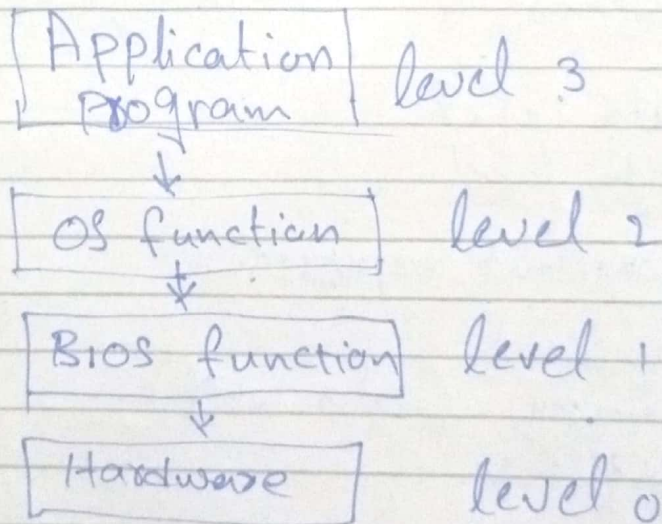 Application
program level 3
OS function level 2
BIOS function level 1
Hardware level 0